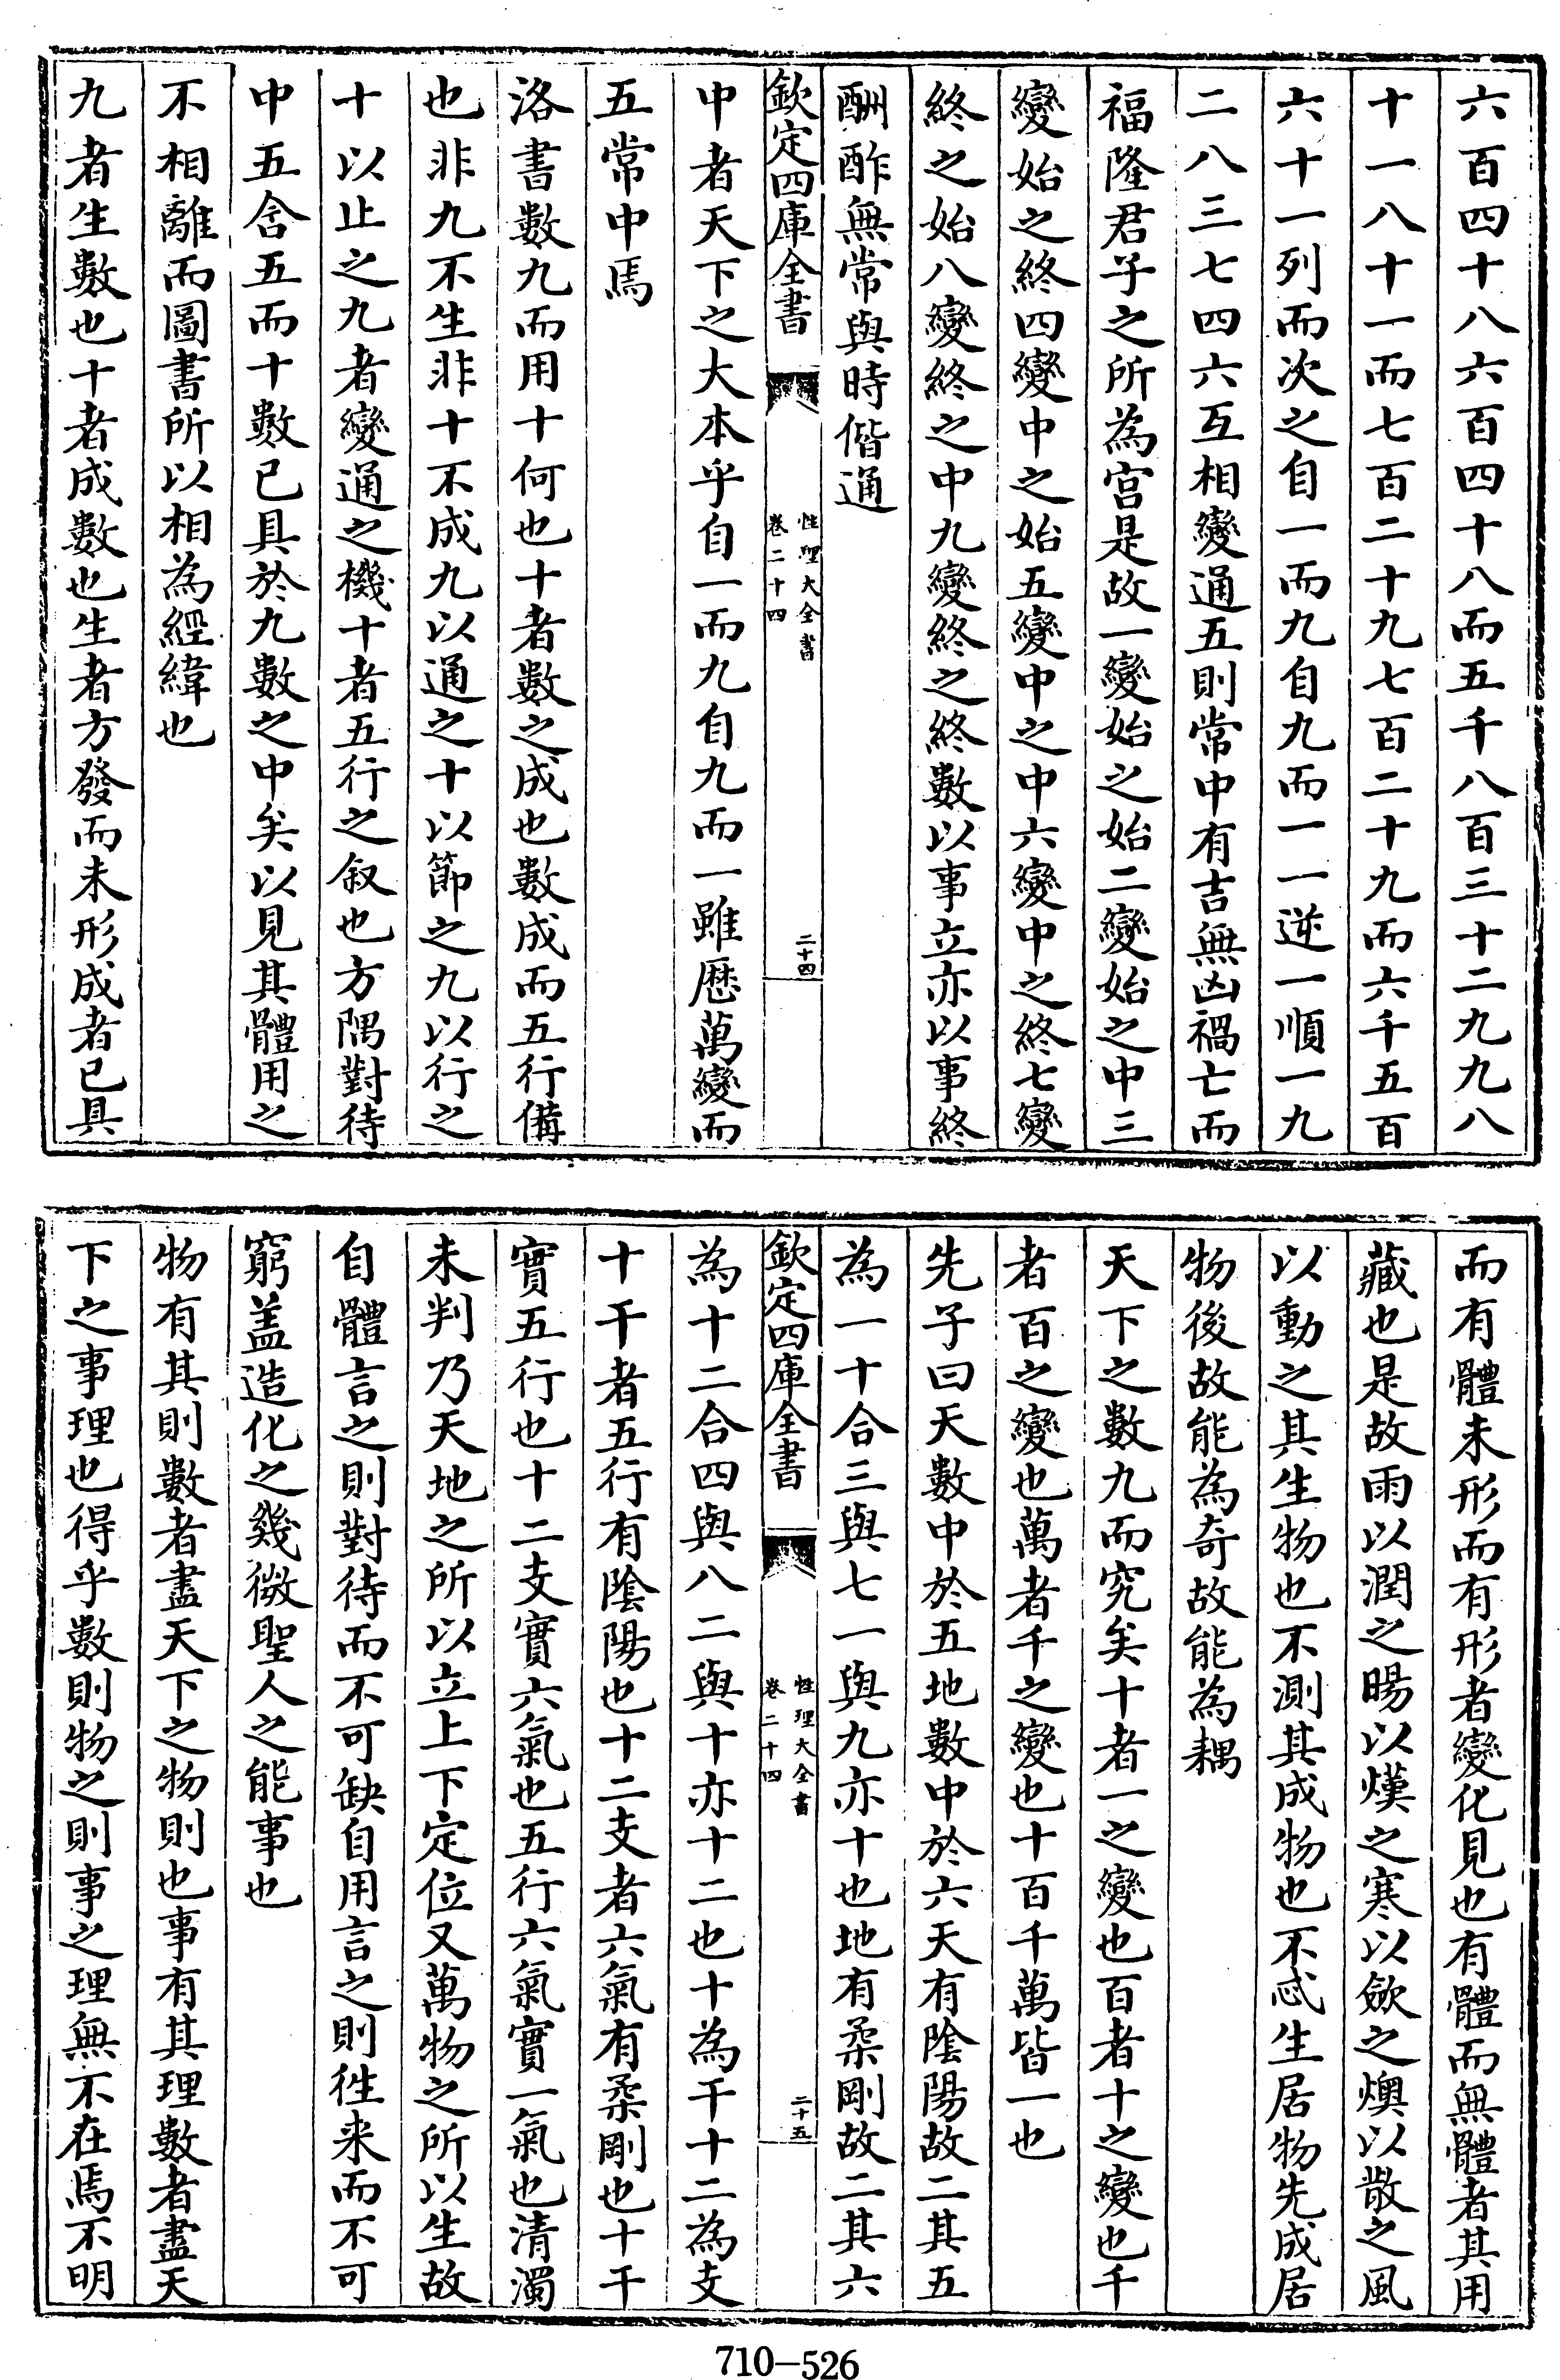 六百四十八六百四十八而五千八百三十二九九八
十一八十一而七百二十九七百二十九而六千五百
六十一列而次之自一而九自九而一一逆一順一九
二八三七四六互相變通五則常中有吉無凶禍亡而
福隆君子之所為宫是故一變始之始二變始之中三
變始之終四變中之始五變中之中六變中之終七變
終之始八變終之中九變終之終數以事立亦以事終
酬酢無常與時偕通
欽定四庫全書
性理大全書
卷二十四
二十四
中者天下之大本乎自一而九自九而一雖歴萬變而
五常中焉
洛書數九而用十何也十者數之成也數成而五行備
也非九不生非十不成九以通之十以節之九以行之
十以止之九者變通之機十者五行之叙也方隅對待
中五含五而十數已具於九數之中矣以見其體用之
不相離而圖書所以相為經緯也
九者生數也十者成數也生者方發而未形成者已具
而有體未形而有形者變化見也有體而無體者其用
藏也是故雨以潤之暘以熯之寒以歛之燠以散之風
以動之其生物也不測其成物也不忒生居物先成居
物後故能為奇故能為耦
天下之數九而究矣十者一之變也百者十之變也千
者百之變也萬者千之變也十百千萬皆一也
先子曰天數中於五地數中於六天有陰陽故二其五
為一十合三與七一與九亦十也地有柔剛故二其六
欽定四庫全書
性理大全書
卷二十四
二十五
為十二合四與八二與十亦十二也十為干十二為支
十干者五行有陰陽也十二支者六氣有柔剛也十干
實五行也十二支實六氣也五行六氣實一氣也清濁
未判乃天地之所以立上下定位又萬物之所以生故
自體言之則對待而不可缺自用言之則徃来而不可
窮盖造化之幾微聖人之能事也
物有其則數者盡天下之物則也事有其理數者盡天
下之事理也得乎數則物之則事之理無不在焉不明
710-526